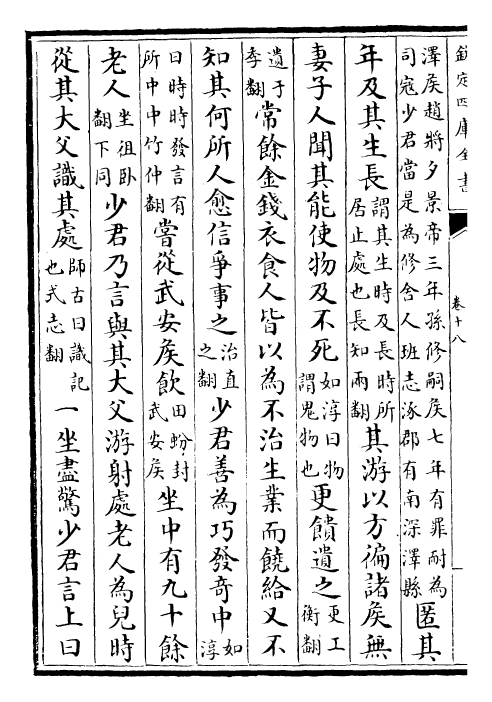 欽定四庫全書 卷十八
澤矦趙將夕景帝三年孫修嗣矦七年有罪耐為司寇少君當是為修舍人班志涿郡有南深澤縣匿其
年及其生長謂其生時及長時所居止處也長知兩翻其游以方徧諸矦無
妻子人聞其能使物及不死如淳曰物謂鬼物也更饋遺之更工衡翻
遺于季翻常餘金錢衣食人皆以為不治生業而饒給又不
知其何所人愈信爭事之治直之翻少君善為巧發奇中如淳
曰時時發言有所中中竹仲翻嘗從武安矦飲田蚡封武安矦坐中有九十餘
老人坐徂卧翻下同少君乃言與其大父游射處老人為兒時
從其大父識其處師古曰識記也式志翻一坐盡驚少君言上曰